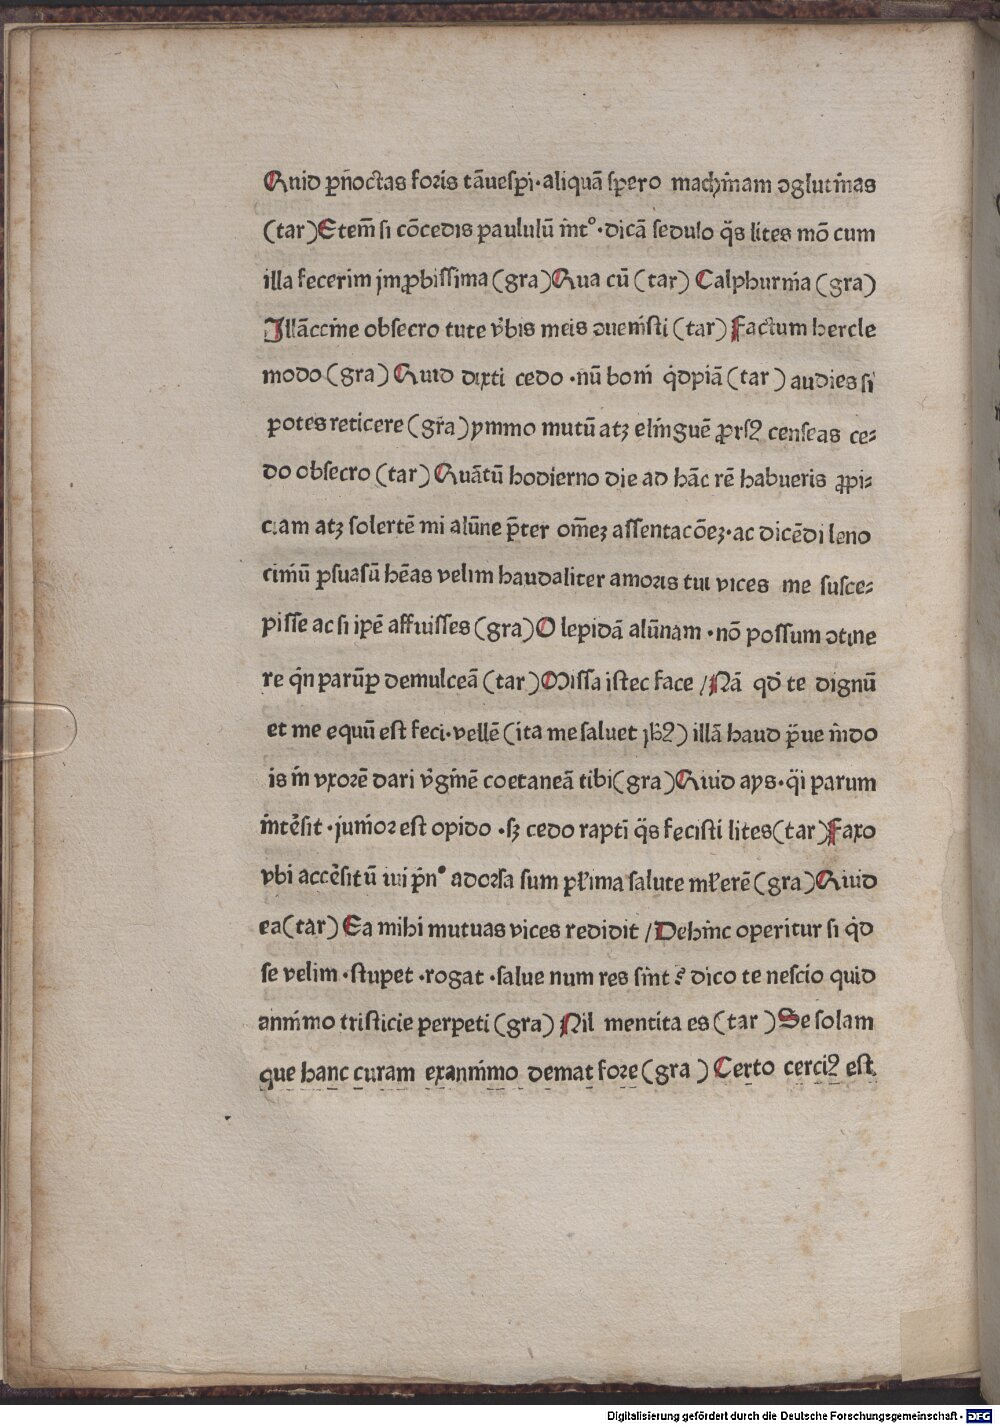 Quid p̄noctas foris tāuesp̱i·aliquā sp̱ero machīnam ꝯglutīnas
(tar)Etem̄ si cōcedis paululū īntº·dicā sedulo q̄s lites mō cum
illa fecerim imꝓbissima (gra)Qua cū (tar) Calphurnīa (gra)
Illāccīne obsecro tute v̄bis meis ꝯuenīsti (tar) Factum hercle
modo (gra) Quid dixti cedo ·nū bonī q̇dpiā (tar) audies si
potes reticere (gra) ymmo mutū atꝫ elīnguē ꝓrsꝰ censeas ce⸗
do obsecro (tar) Quātū hodierno die ad hāc rē habueris ꝓpi⸗
ciam atꝫ solertē mi alūne p̄ter om̄eꝫ assentacōeꝫ·ac dicēdi leno
cinīū ꝑsuasū hēas velim haudaliter amoris tui vices me susce⸗
pisse ac si ip̄e affuisses (gra) O lepidā alūnam ·nō possum ꝯtine
re q̇n parūꝑ demulceā (tar) Missa istec face / Nā qd̄ te dignū
et me equū est feci·vellē (ita me saluet ihꝰ) illā haud p̄ue īmdo
is īn vxorē dari v̄gīnē coetaneā tibi(gra)Quid ays·q̄i parum
īntēsit ·iunīor est opido ·sꝫ cedo rapti q̄s fecisti lites(tar)Faxo
vbi accēsitū iui p̄nº adorsa sum pl̄ima salute ml̄erē (gra)Quid
ea(tar) Ea mihi mutuas vices redidit / Dehīnc operitur si q̇d
se velim ·stupet ·rogat ·salue num res sīnt ? dico te nescio quid
annīmo tristicie perpeti (gra) Nil mentita es (tar) Se solam
que hanc curam exannīmo demat fore (gra) Certo cerciꝰ est
Digitalisierung gefördert durch die Deutsche Forschungsgemeinschaft - DFG